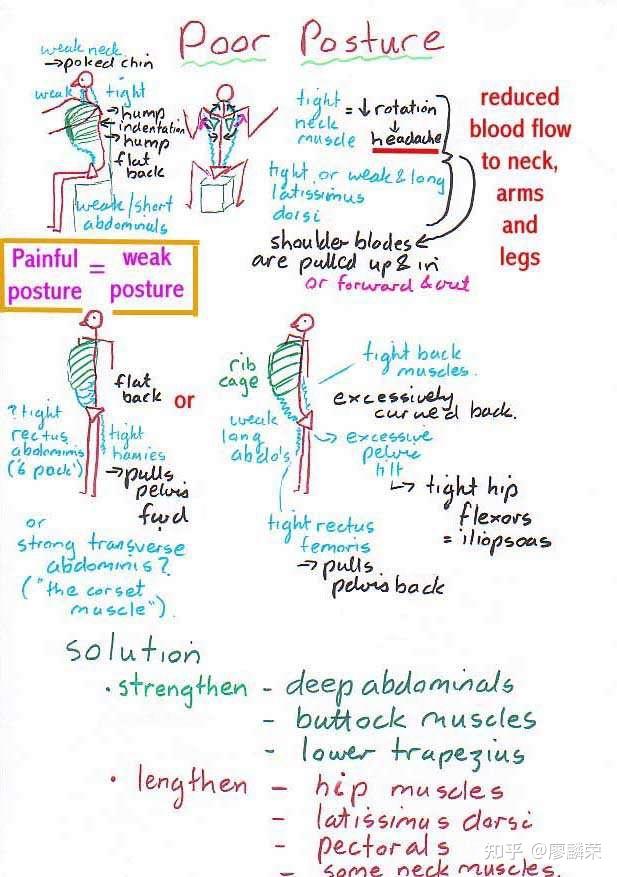 Poor Posture
weak neck
→ poked chin
weak
tight
→ hump
indentation
→ hump
flat
back
weak/short
abdominals
tight
neck
muscle
= ↓ rotation
↓
headache
tight or weak & long
latissimus
dorsi
shoulder blades
are pulled up & in
or forward & out
reduced
blood flow
to neck,
arms
and
legs
Painful = weak
posture posture
flat
back
or
? tight
rectus
abdominis
('6 pack')
tight
hamies
→ pulls
pelvis
fwd
or
strong transverse
abdominis?
("the corset
muscle").
rib
cage
tight back
muscles.
excessively
curved back.
weak
long
abdo's
→ excessive
pelvic
tilt
↳ tight hip
flexors
= iliopsoas
tight rectus
femoris
→ pulls
pelvis back
Solution
• strengthen - deep abdominals
- buttock muscles
- lower trapezius
• lengthen - hip muscles
- latissimus dorsi
- pectorals
- some neck muscles.
知乎 @廖麟荣